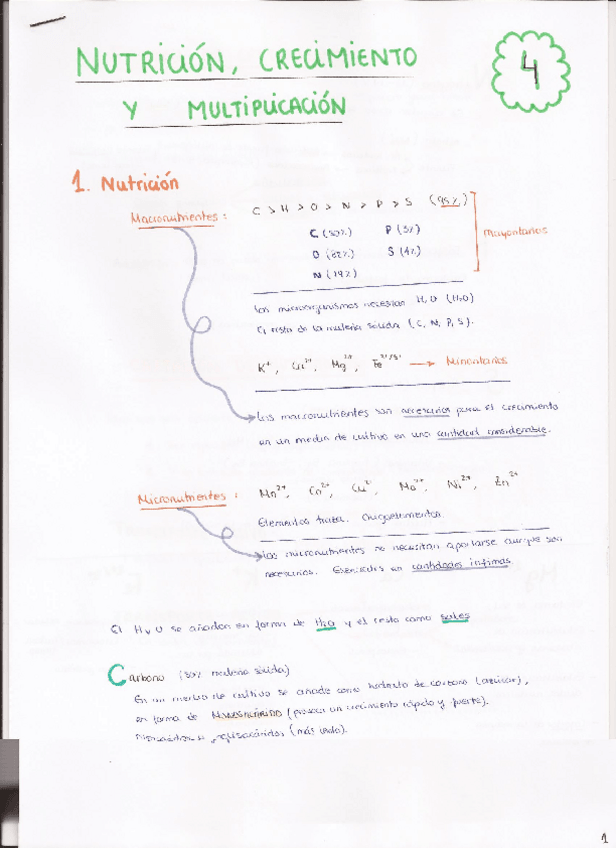 NUTRICIÓN, CRECIMIENTO
Y MULTIPLICACIÓN
4
1. Nutrición
Macronutrientes: C > H > O > N > P > S (95%)
C (50%) P (3%) Mayoritarios
O (%) S (%)
N (14%)
Los microorganismos necesitan H, O (H2O)
El resto de la materia sólida (C, N, P, S).
K+, 2+, Mg2+, Fe2+/3+ → Minoritarios
Los macronutrientes son necesarios para el crecimiento
en un medio de cultivo en una cantidad considerable.
Micronutrientes: Mn2+, Co2+, Cu2+, Mo2+, Ni2+, Zn2+
Elementos traza. Oligoelementos.
Los micronutrientes no necesitan aportarse aunque son
necesarios. Esenciales en cantidades ínfimas.
El H y O se añaden en forma de H2O y el resto como sales
Carbono (50% materia sólida)
En un medio de cultivo se añade como hidrato de carbono (azúcar),
en forma de (provoca un crecimiento rápido y fuerte).
polisacáridos (más lento).
1